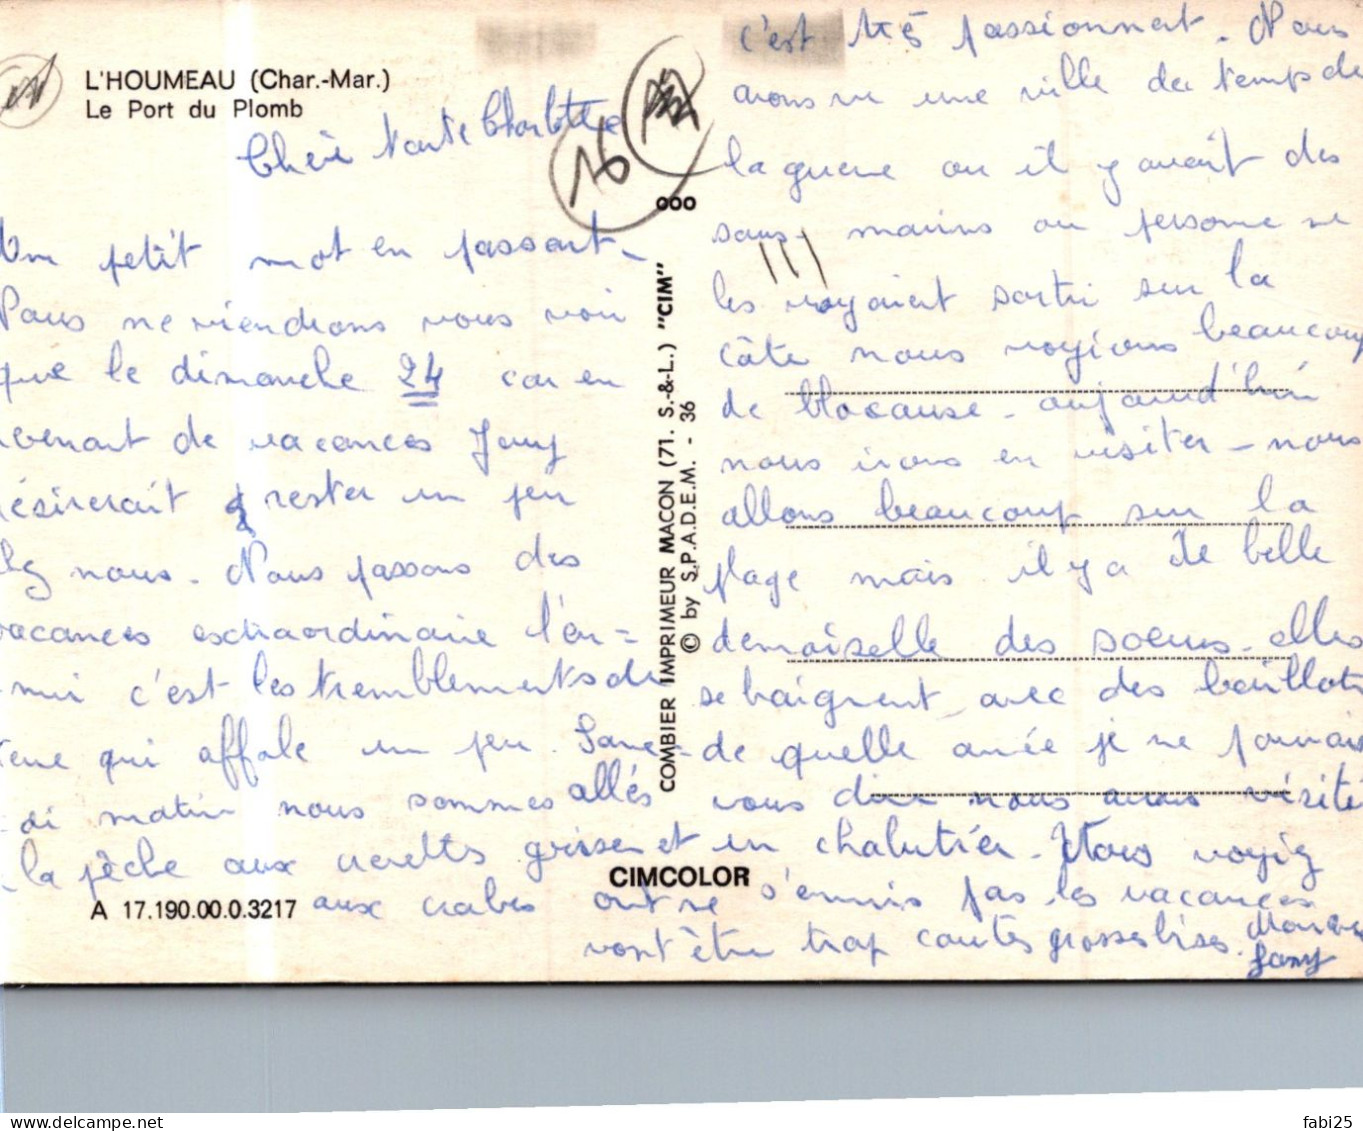 L'HOUMEAU (Char.-Mar.)
Le Port du Plomb
Chère tante Charlotte
16
Un petit mot en passant
Nous ne viendrons vous voir
que le dimanche 24 car en
revenant de vacances Jany
désirerait rester un peu
chez nous. Nous passons des
vacances extraordinaire l'en=
nui c'est les tremblements de
terre qui affole un peu. Same-
di matin nous sommes allés
à la pêche aux crevettes grises et
aux crabes
ooo
COMBIER IMPRIMEUR MACON (71. S.-&-L.) "CIM"
© by S.P.A.D.E.M. - 36
CIMCOLOR
A 17.190.00.0.3217
c'est très passionnant. Nous
avons vu une ville du temps de
la guerre ou il y avait des
sous marins ou personne ne
les voyaient sortir sur la
côte nous voyions beaucoup
de blocause - aujourd'hui
nous irons en visiter - nous
allons beaucoup sur la
plage mais il y a de belle
demoiselle des soeurs elles
se baignent avec des maillots
de quelle année je ne pourrais
vous dire nous avons visiter
un chalutier. Vous voyez
on ne s'ennuis pas les vacances
vont être trop courtes grosses bises.
Jany